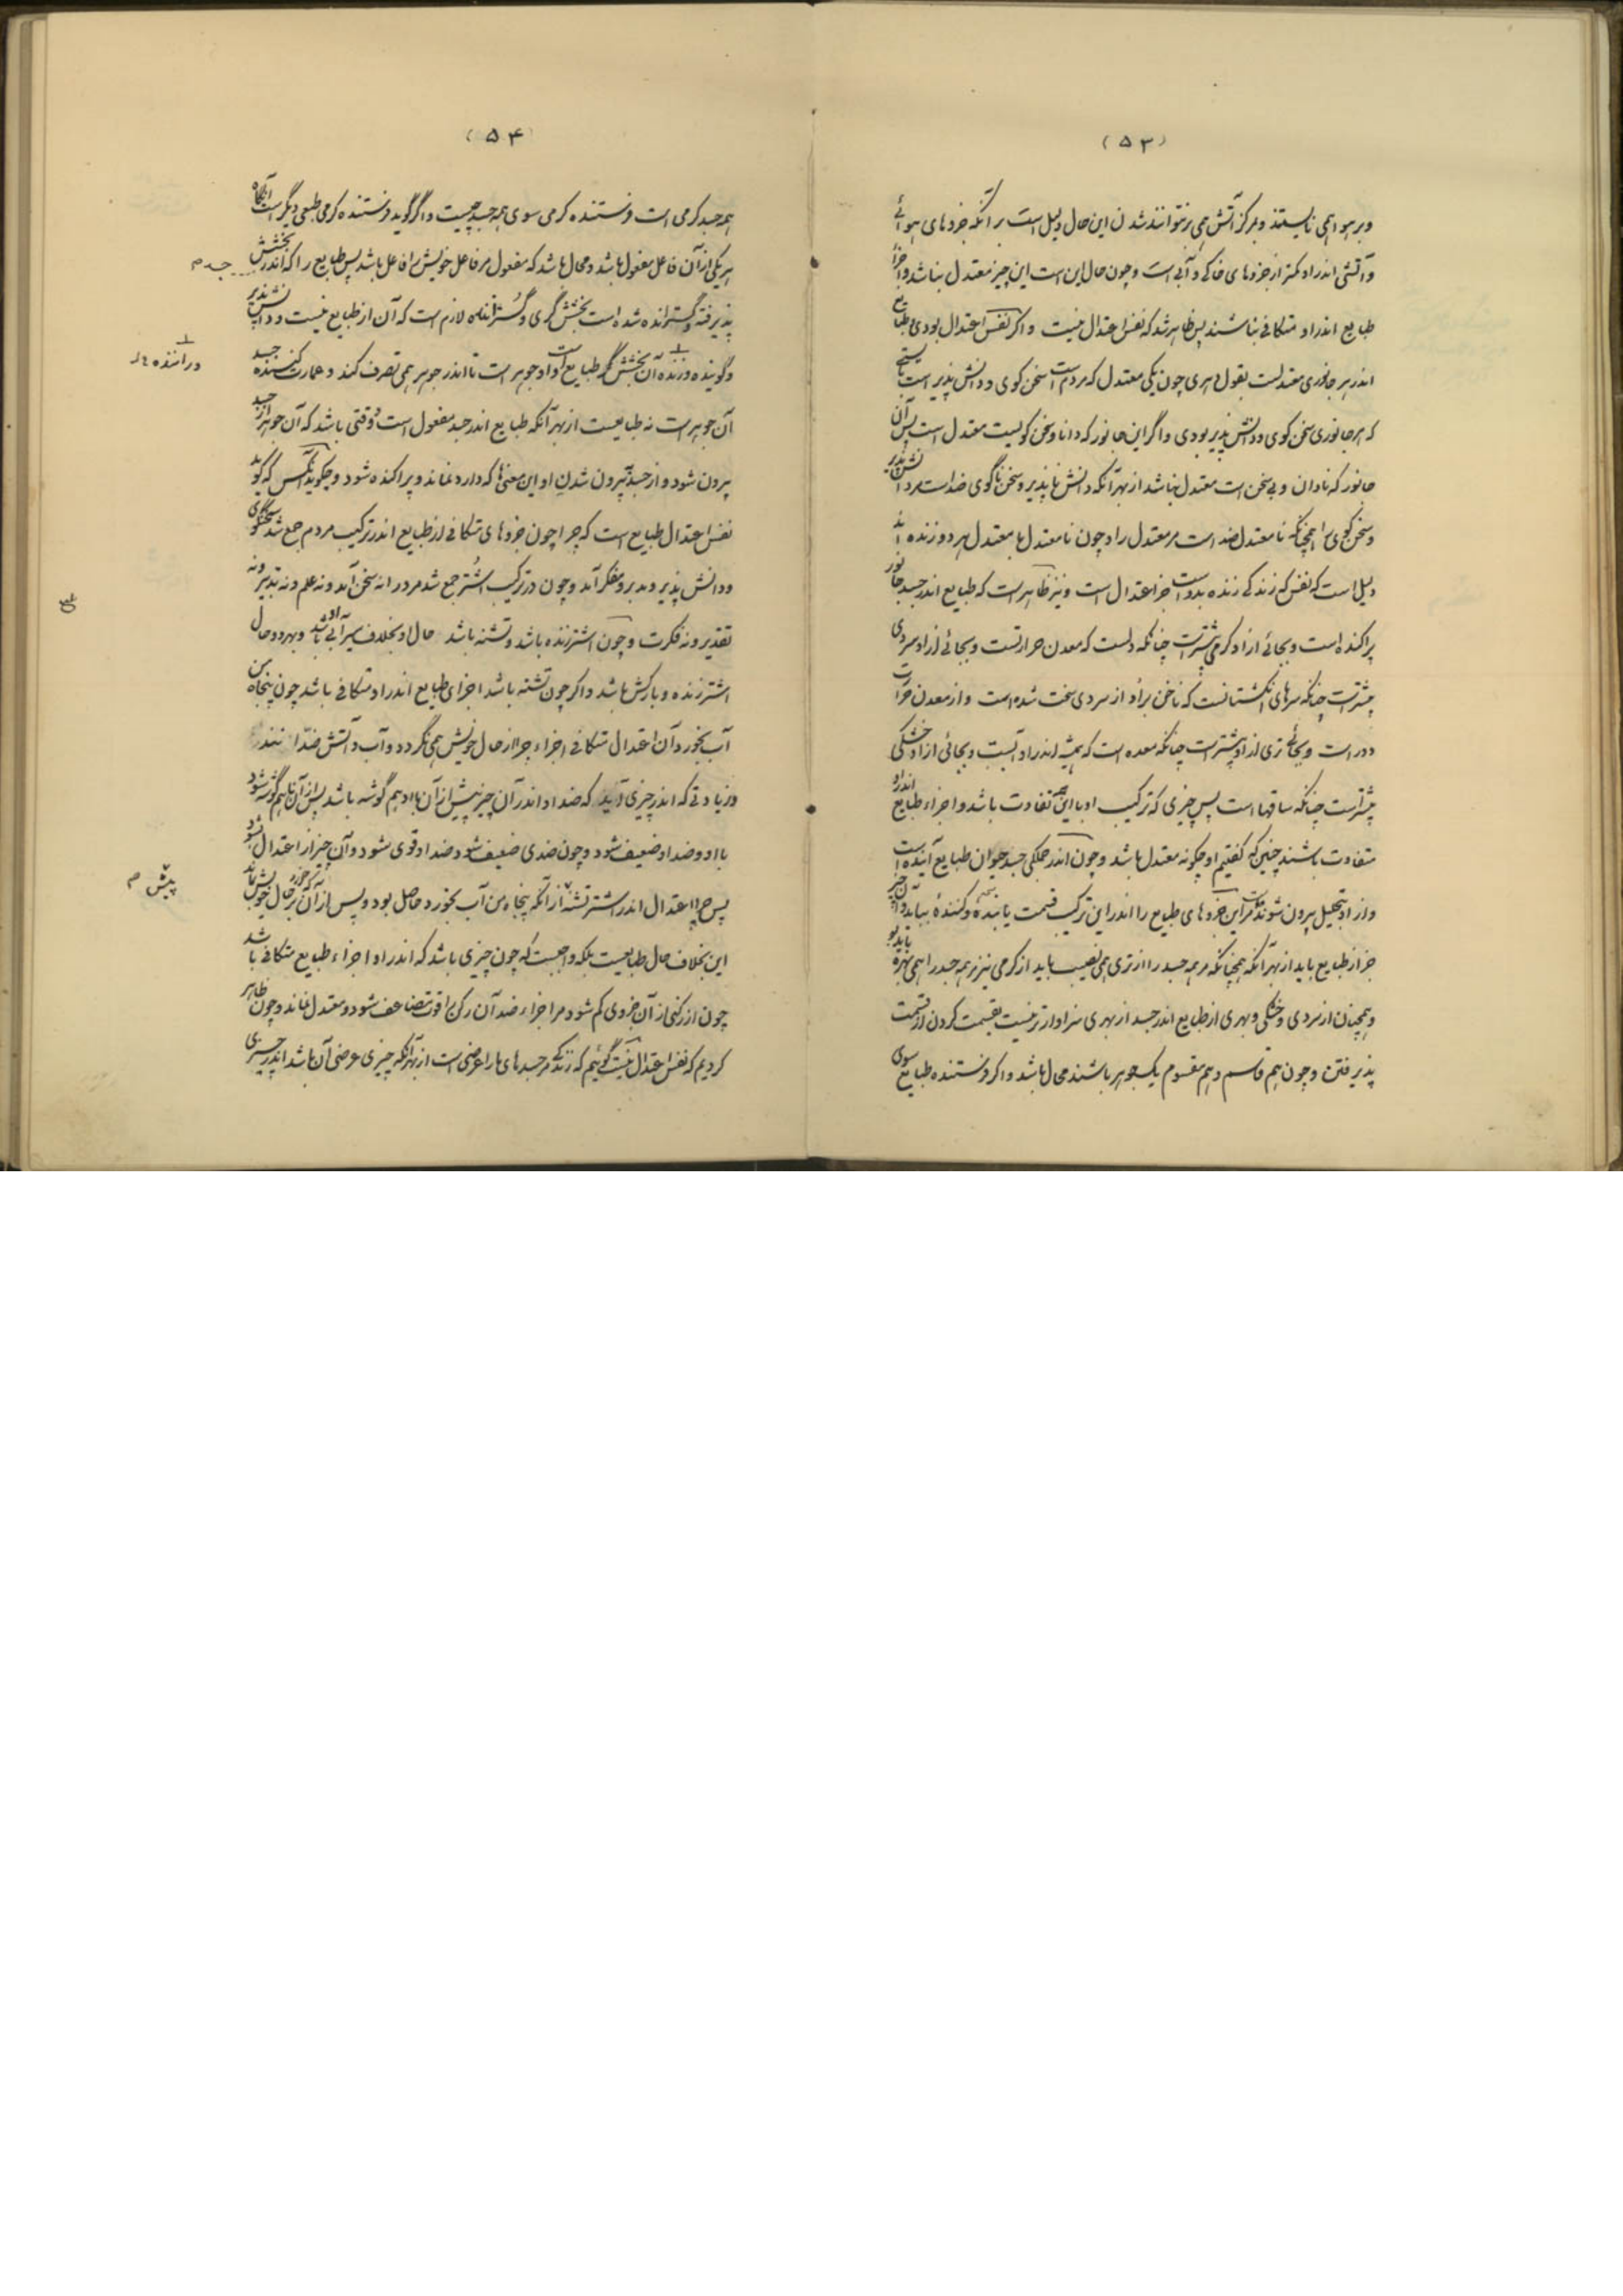 (۵۳)
و بر هوا همی نایستند و بمرکز آتش همی نتوانند شدن این حال دلیل است بر آنکه جزوهای هوائی
و آتشی اندر او کمتر از جزوهای خاکی و آبی است و چون حال این است این چیز معتدل نباشد و اجزاء
طبایع اندر او متکافی نباشند پس ظاهر شد که نفس اعتدال نیست و اگر نفس اعتدال بودی و طبایع
اندر هر جانوری معتدلست بقول دهری چون یکی معتدل که مردم است سخن گوی و دانش پذیر است بایستی
که هر جانوری سخن گوی و دانش پذیر بودی و اگر این جانور که دانا و سخن گویست معتدل است پس آن
جانور که نادان و بی سخن است معتدل نباشد از بهر آنکه دانش ناپذیر و سخن ناگوی ضد است مر دانش پذیر
و سخن گوی را همچنانکه نامعتدل ضد است مر معتدل را و چون نامعتدل با معتدل هر دو زنده اند
دلیل است که نفس که زندگی زنده بدوست جز اعتدال است و نیز ظاهر است که طبایع اندر جسد جانور
پراکنده است و بجائی از او گرمی بیشتر است چنانکه دلست که معدن حرارتست و بجائی از او سردی
بیشتر است چنانکه سرهای انگشتانست که ناخن بر او از سردی سخت شده است و از معدن حرارت
دور است و بجائی تری از او بیشتر است چنانکه معده است که همیشه اندر او آبست و بجائی از او خشکی
بیشتر است چنانکه ساقهاست پس چیزی که ترکیب او با این همه تفاوت باشد و اجزاء طبایع اندر او
متفاوت باشند چنین که گفتیم او چگونه معتدل باشد و چون اندر جملگی جسد حیوان طبایع آینده است
و از او بتحلیل بیرون شونده است مر این جزوهای طبایع را اندر این ترکیب قسمت یابنده و کننده بباید و آن چیز
جز از طبایع باید از بهر آنکه همچنانکه مر همه جسد را از تری همی نصیب باید از گرمی نیز مر همه جسد را همی بهره باید
و همچنان از سردی و خشکی و بهری از طبایع اندر جسد از بهری سزاوارتر نیست بقسمت کردن از قسمت
پذیرفتن و چون هم قاسم و هم مقسوم یک جوهر باشند محال باشد و اگر فرستنده طبایع سوی
(۵۴)
همه جسد گرمی است فرستنده گرمی سوی همه جسد چیست و اگر گوید فرستنده گرمی طبعی دیگر است آنگاه
هر یکی از آن فاعل مفعول باشد و محال باشد که مفعول مر فاعل خویش را فاعل باشد پس طبایع را که اندر جسد بخشش
جسد م
پذیرفته و گسترانده شده است بخشش گری و گستراننده لازم است که آن از طبایع نیست و دانش پذیر
و گوینده و زنده آن بخشش گر طبایع است و او جوهر است تا اندر جوهر همی تصرف کند و عمارت کننده جسد
دراننده ل
آن جوهر است نه طبایعست از بهر آنکه طبایع اندر جسد مفعول است و وقتی باشد که آن جوهر از جسد
بیرون شود و از جسد بیرون شدن او این معنی‌ها که دارد نماند و پراکنده شود و چگوید آنکس که گوید
نفس اعتدال طبایع است که چرا چون جزوهای متکافی از طبایع اندر ترکیب مردم جمع شد سخنگوی
و دانش پذیر و مدبر و مفکر آمد و چون در ترکیب اشتر جمع شد مر او را نه سخن آمد و نه علم و نه تدبیر و نه
تقدیر و نه فکرت و چون اشتر زنده باشد و تشنه باشد حال او بخلاف سیرآبی او باشد و بهر دو حال
اشتر زنده و بارکش باشد و اگر چون تشنه باشد اجزای طبایع اندر او متکافی باشد چون پنجاه من
آب بخورد آن اعتدال متکافی اجزاء چرا از حال خویش همی نگردد و آب و آتش ضدانند
و زیادتی که اندر چیزی آید که ضد او اندر آن چیز پیش از آن با او هم گوشه باشد پس از آن ناهم گوشه شود
با او و ضد او ضعیف شود و چون ضدی ضعیف شود ضد او قوی شود و آن چیز از اعتدال بشود
پس چرا اعتدال اندر اشتر تشنه از آنکه پنجاه من آب بخورد حاصل بود و پس از آن که خورد بر حال خویش بماند
پیش م
این بخلاف حال طبایعست بلکه واجبست که چون چیزی باشد که اندر او اجزاء طبایع متکافی باشد
چون از رکنی از آن جزوی کم شود مر اجزاء ضد آن رکن را قوت متضاعف شود و معتدل نماند و چون ظاهر
کردیم که نفس اعتدال نیست گوئیم که زندگی مر جسدهای ما را عرضی است از بهر آنکه چیزی عرضی آن باشد اندر چیزی